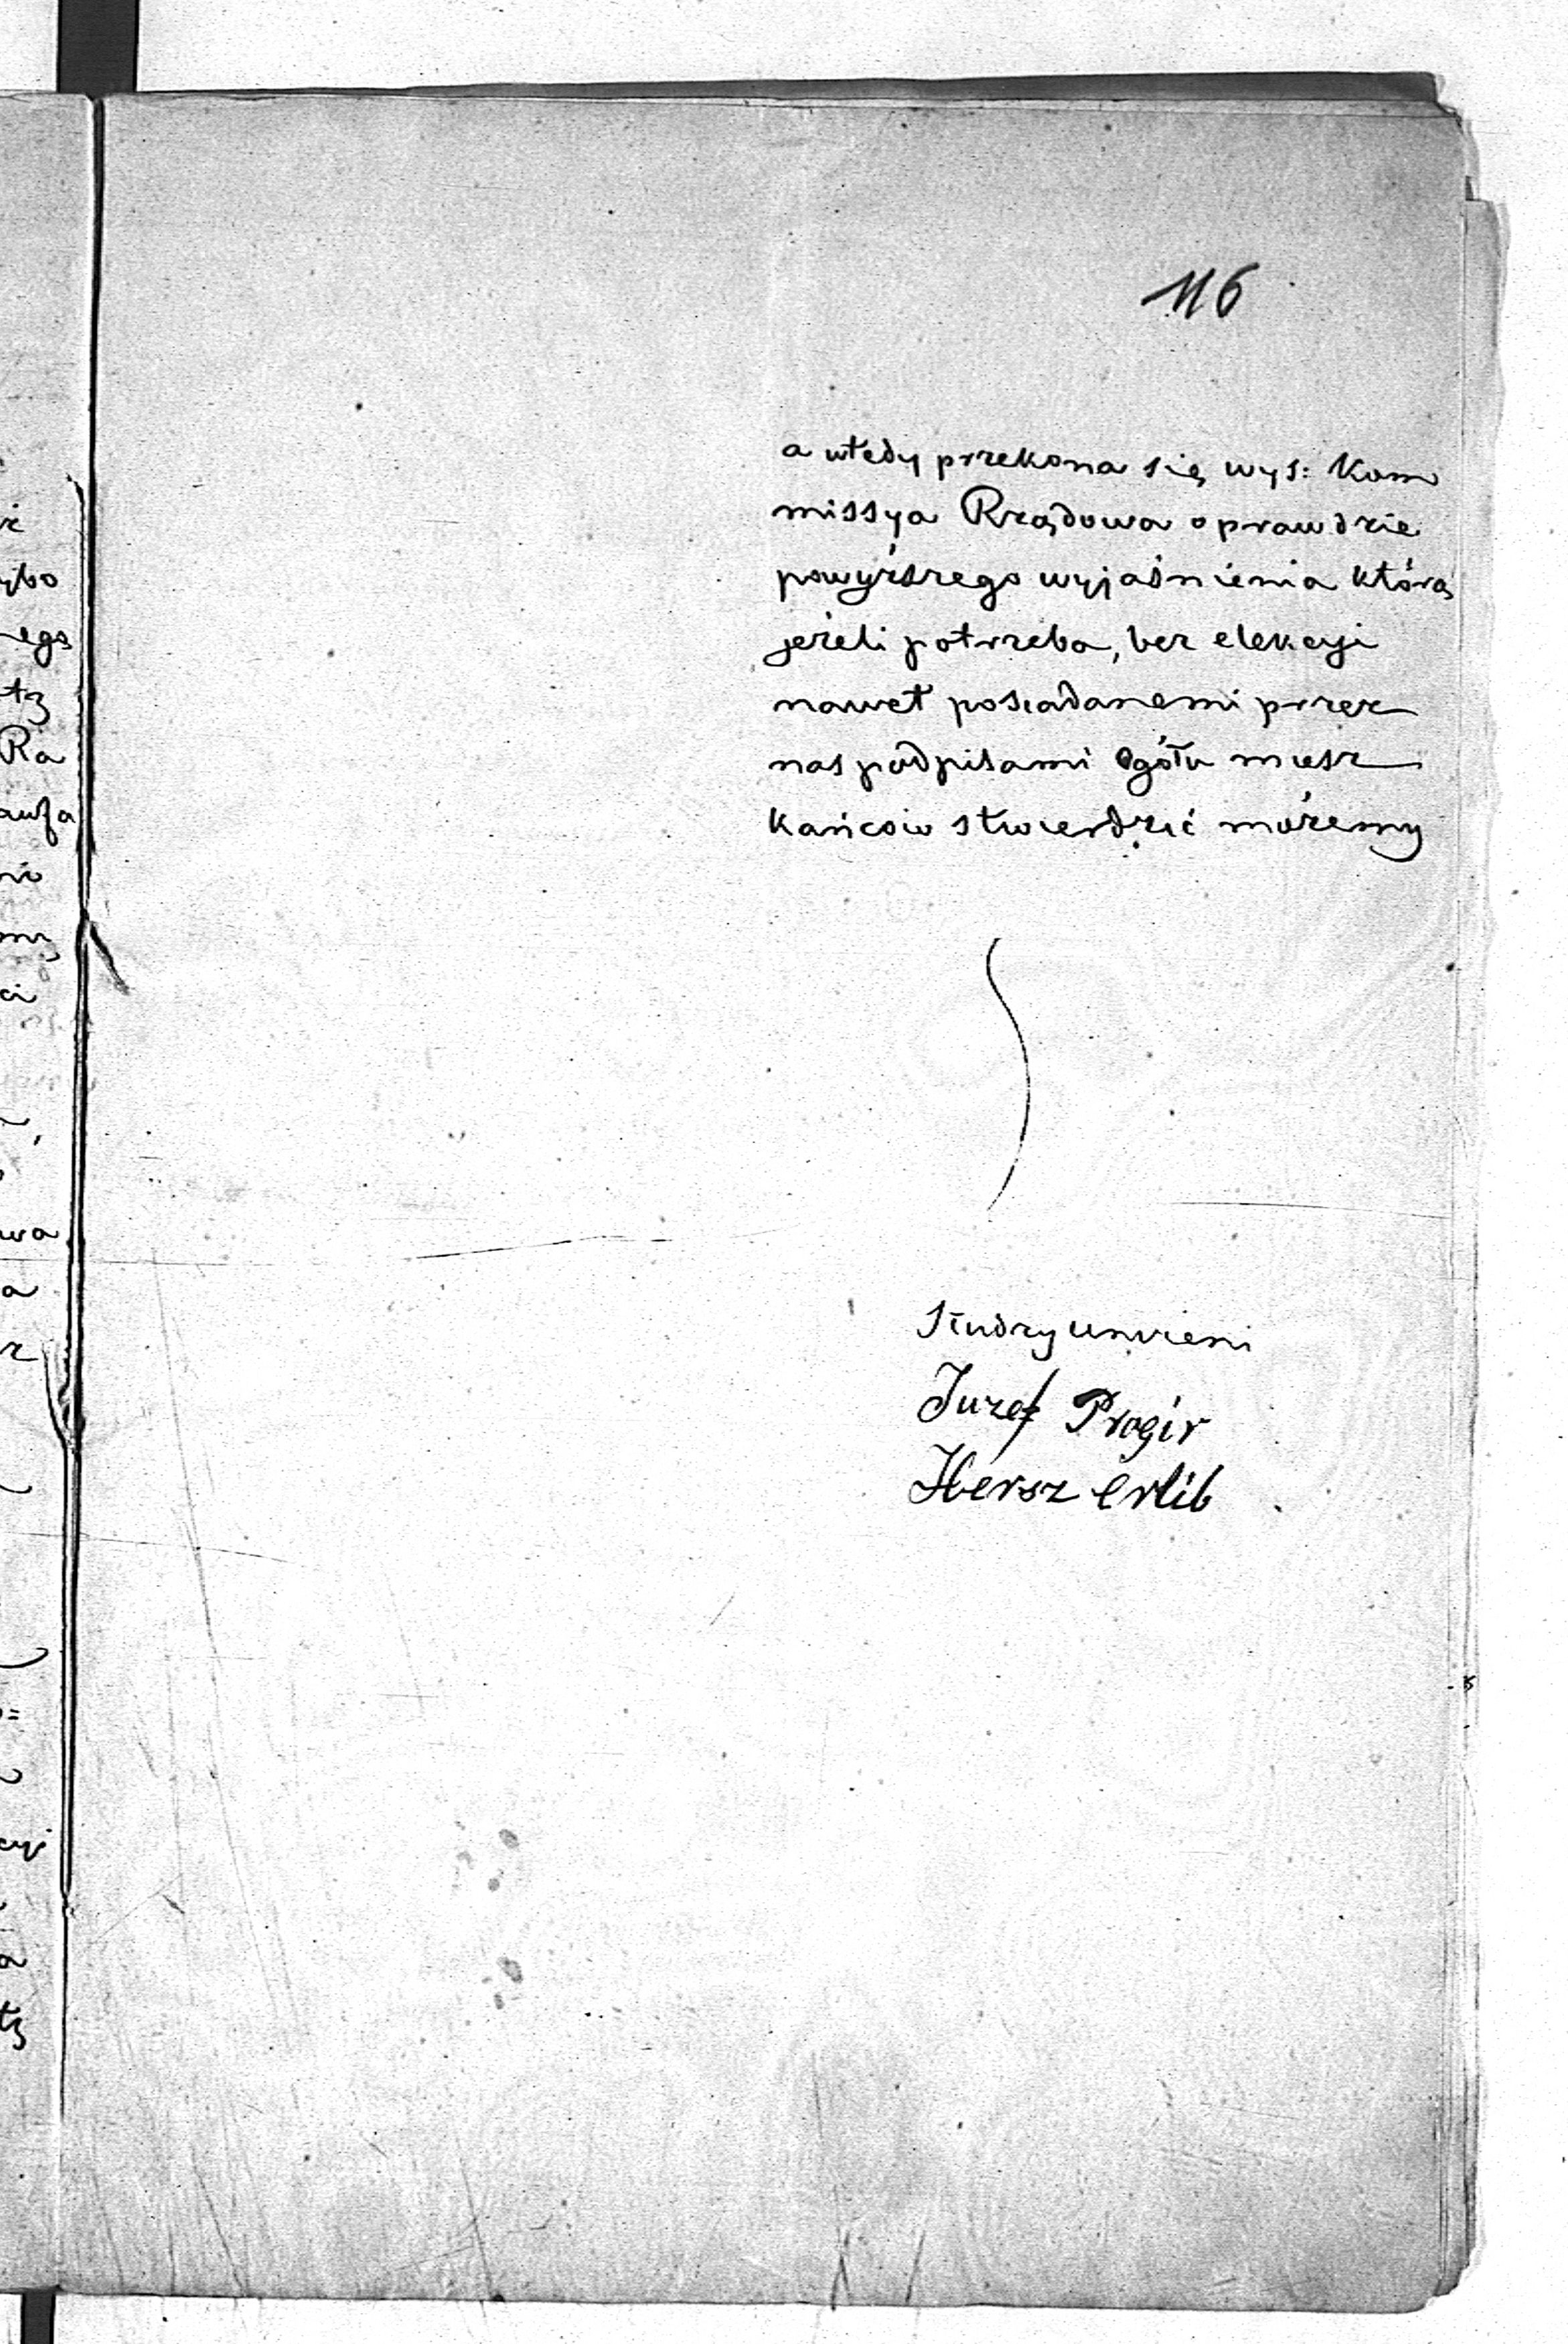 116
a wtedy przekona się wys: Kom
missya Rządowa o prawdzie
powyższego wyjaśnienia którą
jeżeli potrzeba, bez elekcyi
nawet posiadanemi przez
nas podpisami Ogółu miesz
kańców stwierdzić możemy
Słudzy uniżeni
Juzef Progir
Hersz Erlib